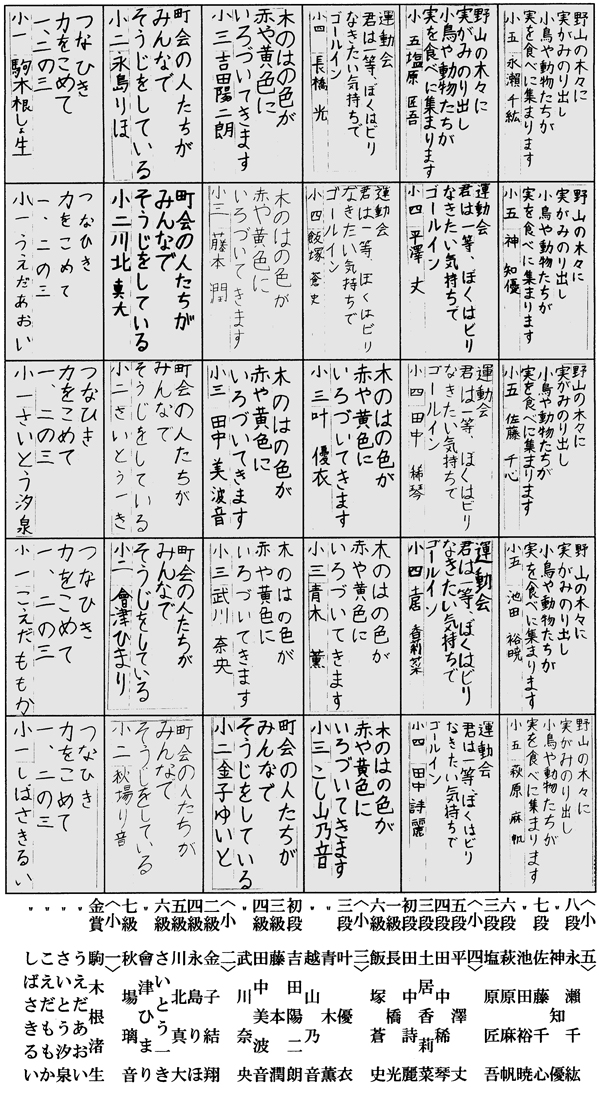 野山の木々に
実がみのり出し
小鳥や動物たちが
実を食べに集まります
小五 永瀬 千紘
野山の木々に
実がみのり出し
小鳥や動物たちが
実を食べに集まります
小五 塩原 匠吾
運動会
君は一等、ぼくはビリ
なきたい気持ちで
ゴールイン
小四 長橋 光
木のはの色が
赤や黄色に
いろづいてきます
小三 吉田陽二朗
町会の人たちが
みんなで
そうじをしている
小二 永島りほ
つなひき
力をこめて
一、二の三
小一 駒木根しょ生
野山の木々に
実がみのり出し
小鳥や動物たちが
実を食べに集まります
小五 神 知優
運動会
君は一等、ぼくはビリ
なきたい気持ちで
ゴールイン
小四 平澤 丈
運動会
君は一等、ぼくはビリ
なきたい気持ちで
ゴールイン
小四 飯塚 蒼史
木のはの色が
赤や黄色に
いろづいてきます
小三 藤本 潤
町会の人たちが
みんなで
そうじをしている
小二 川北 真大
つなひき
力をこめて
一、二の三
小一 うえだあおい
野山の木々に
実がみのり出し
小鳥や動物たちが
実を食べに集まります
小五 佐藤 千心
運動会
君は一等、ぼくはビリ
なきたい気持ちで
ゴールイン
小四 田中 稀琴
木のはの色が
赤や黄色に
いろづいてきます
小三 叶 優衣
木のはの色が
赤や黄色に
いろづいてきます
小三 田中 美波音
町会の人たちが
みんなで
そうじをしている
小二 さいとう一き
つなひき
力をこめて
一、二の三
小一 さいとう汐泉
野山の木々に
実がみのり出し
小鳥や動物たちが
実を食べに集まります
小五 池田 裕暁
運動会
君は一等、ぼくはビリ
なきたい気持ちで
ゴールイン
小四 土居 香莉菜
木のはの色が
赤や黄色に
いろづいてきます
小三 青木 薫
木のはの色が
赤や黄色に
いろづいてきます
小三 武川 奈央
町会の人たちが
みんなで
そうじをしている
小二 會津ひまり
つなひき
力をこめて
一、二の三
小一 こえだももか
野山の木々に
実がみのり出し
小鳥や動物たちが
実を食べに集まります
小五 萩原 麻帆
運動会
君は一等、ぼくはビリ
なきたい気持ちで
ゴールイン
小四 田中 詩麗
木のはの色が
赤や黄色に
いろづいてきます
小三 こし山乃音
町会の人たちが
みんなで
そうじをしている
小二 金子ゆいと
町会の人たちが
みんなで
そうじをしている
小二 秋場り音
つなひき
力をこめて
一、二の三
小一 しばさきるい
〈小五〉
八段 永瀬千紘
〃 神知優
七段 佐藤千心
〃 池田裕暁
六段 萩原麻帆
〃 塩原匠吾
〈小四〉
五段 平澤丈
四段 田中稀琴
三段 土居香莉菜
初段 田中詩麗
一級 長橋光
六級 飯塚蒼史
〈小三〉
三段 叶優衣
〃 青木薫
〃 越山乃音
初段 吉田陽二朗
三級 藤本潤
四級 田中美波音
〃 武川奈央
〈小二〉
二級 金子結翔
四級 永島りほ
五級 川北真大
六級 さいとう一き
〃 會津ひまり
七級 秋場璃音
〈小一〉
金賞 駒木根渚生
〃 うえだあおい
〃 さいとう汐泉
〃 こえだももか
〃 しばさきるい